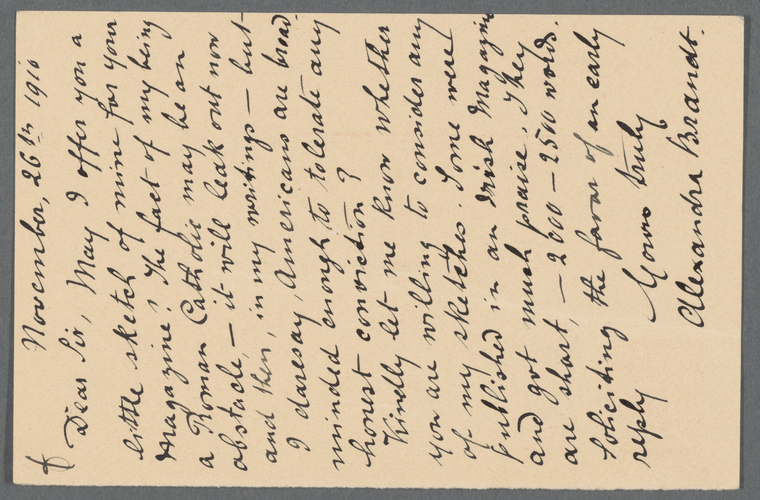 November, 26th 1910
Dear Sir, May I offer you a
little sketch of mine for your
Magazine? The fact of my being
a Roman Catholic may be an
obstacle, — it will leak out now
and then, in my writings — but
I daresay, Americans are broad-
minded enough to tolerate any
honest conviction?
Kindly let me know whether
you are willing to consider any
of my sketches. Some were
published in an Irish Magazine
and got much praise. They
are short, — 2000 — 2500 words.
Soliciting the favor of an early
reply
Yours truly
Alexandra Brandt.